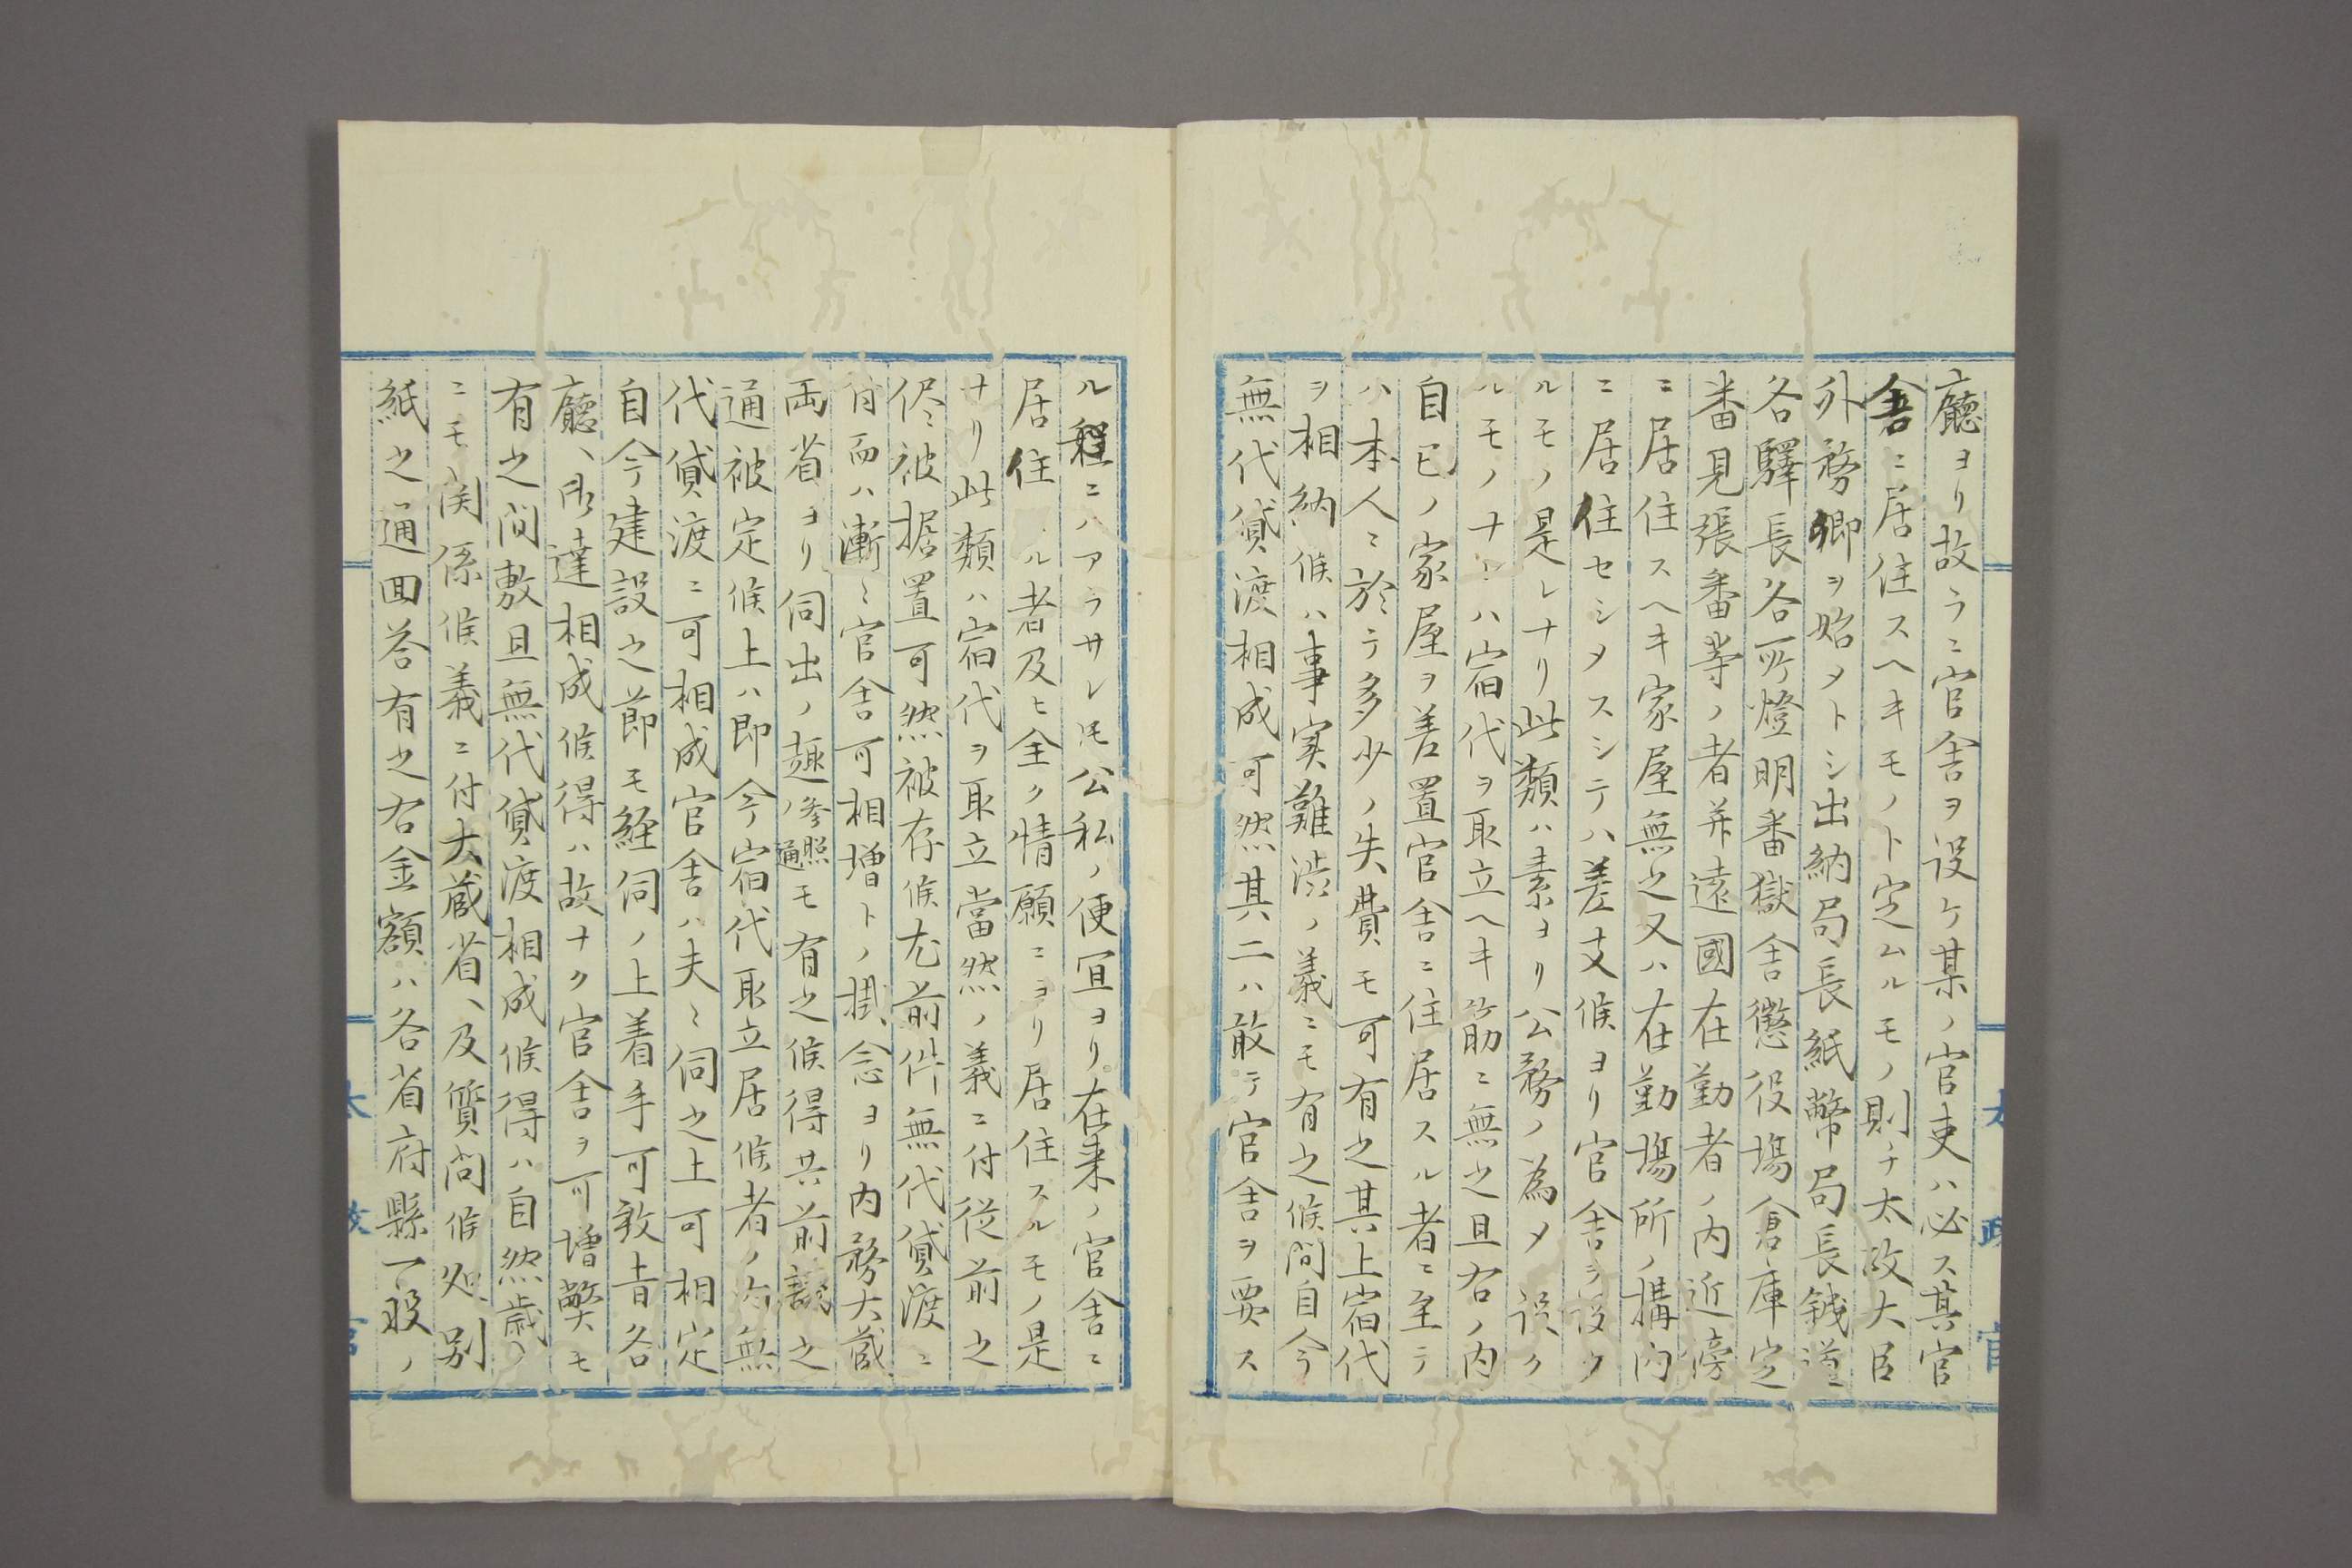 廳ヨリ故ラニ官舎ヲ設ケ某ノ官吏ハ必ス其官
舎ニ居住スヘキモノト定ムルモノ則チ太政大臣
外務卿ヲ始メトシ出納局長紙幣局長銭道
各驛長各所燈明番獄舎懲役場倉庫定
番見張番等ノ者并遠國在勤者ノ内近傍
ニ居住スヘキ家屋無之又ハ在勤場所ノ構内
ニ居住セシメスシテハ差支候ヨリ官舎ヲ設ク
ルモノ是レナリ此類ハ素ヨリ公務ノ為メ設ク
ルモノナレハ宿代ヲ取立ヘキ筋ニ無之且右ノ内
自已ノ家屋ヲ差置官舎ニ住居スル者ニ至テ
ハ本人ニ於テ多少ノ失費モ可有之其上宿代
ヲ相納候ハ事実難渋ノ義ニモ有之候間自今
無代貸渡相成可然其二ハ敢テ官舎ヲ要ス
ルノ程ニハアラサレ𪜈公私ノ便宜ヨリ在来ノ官舎ニ
居住ル者及ヒ全ク情願ニヨリ居住スルモノ是
ナリ此類ハ宿代ヲ取立當然ノ義ニ付従前之
侭被据置可然被存候尤前件無代貸渡ニ
付而ハ漸々官舎可相増トノ掛念ヨリ内務大蔵
両省ヨリ伺出ノ趣(参照ノ通)モ有之候得共前議之
通被定候上ハ即今宿代取立居候者ノ内無
代貸渡ニ可相成官舎ハ夫々伺之上可相定
自今建設之節モ経伺ノ上着手可致旨各
廳ヘ御達相成候得ハ故ナク官舎ヲ可増弊モ
有之間敷且無代貸渡相成候得ハ自然歳入
ニモ関係候義ニ付大蔵省ヘ及質問候処別
紙之通回答有之右金額ハ各省府縣一般ノ
太政官
太政官